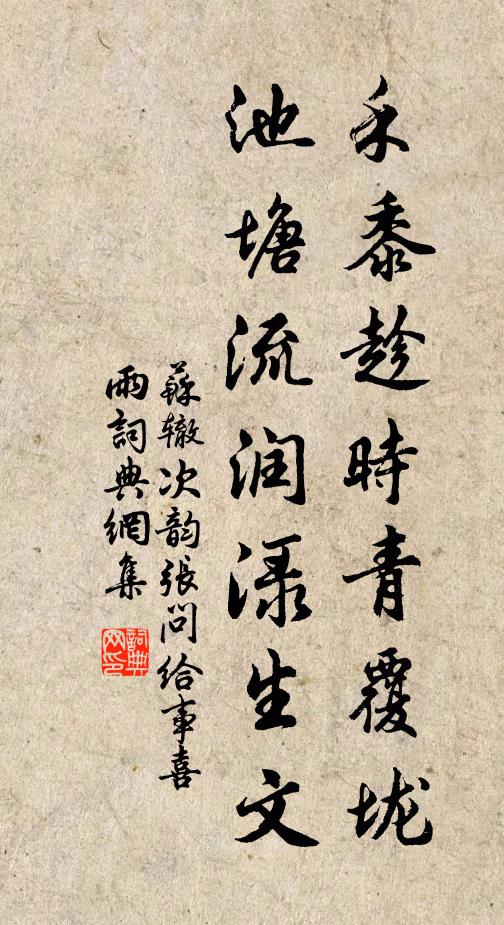 禾黍趁時青覆垅
池塘流润渌生文
蘇辙次韵張问给事喜
雨詞典網集
詞典网印